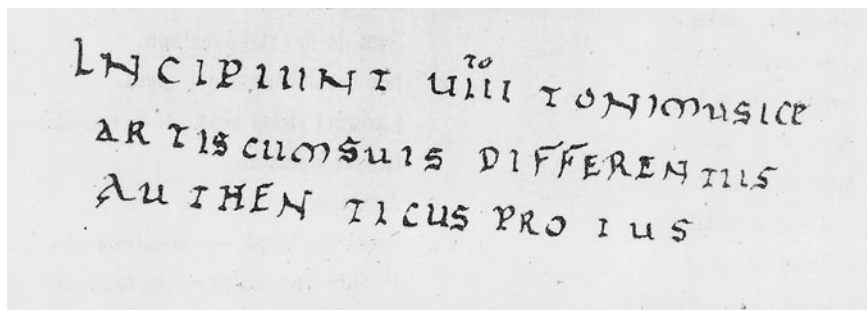 INCIPIUNT VIII TO TONI MUSICE
ARTIS CUM SUIS DIFFERENTIIS
AUTHENTICUS PROTUS